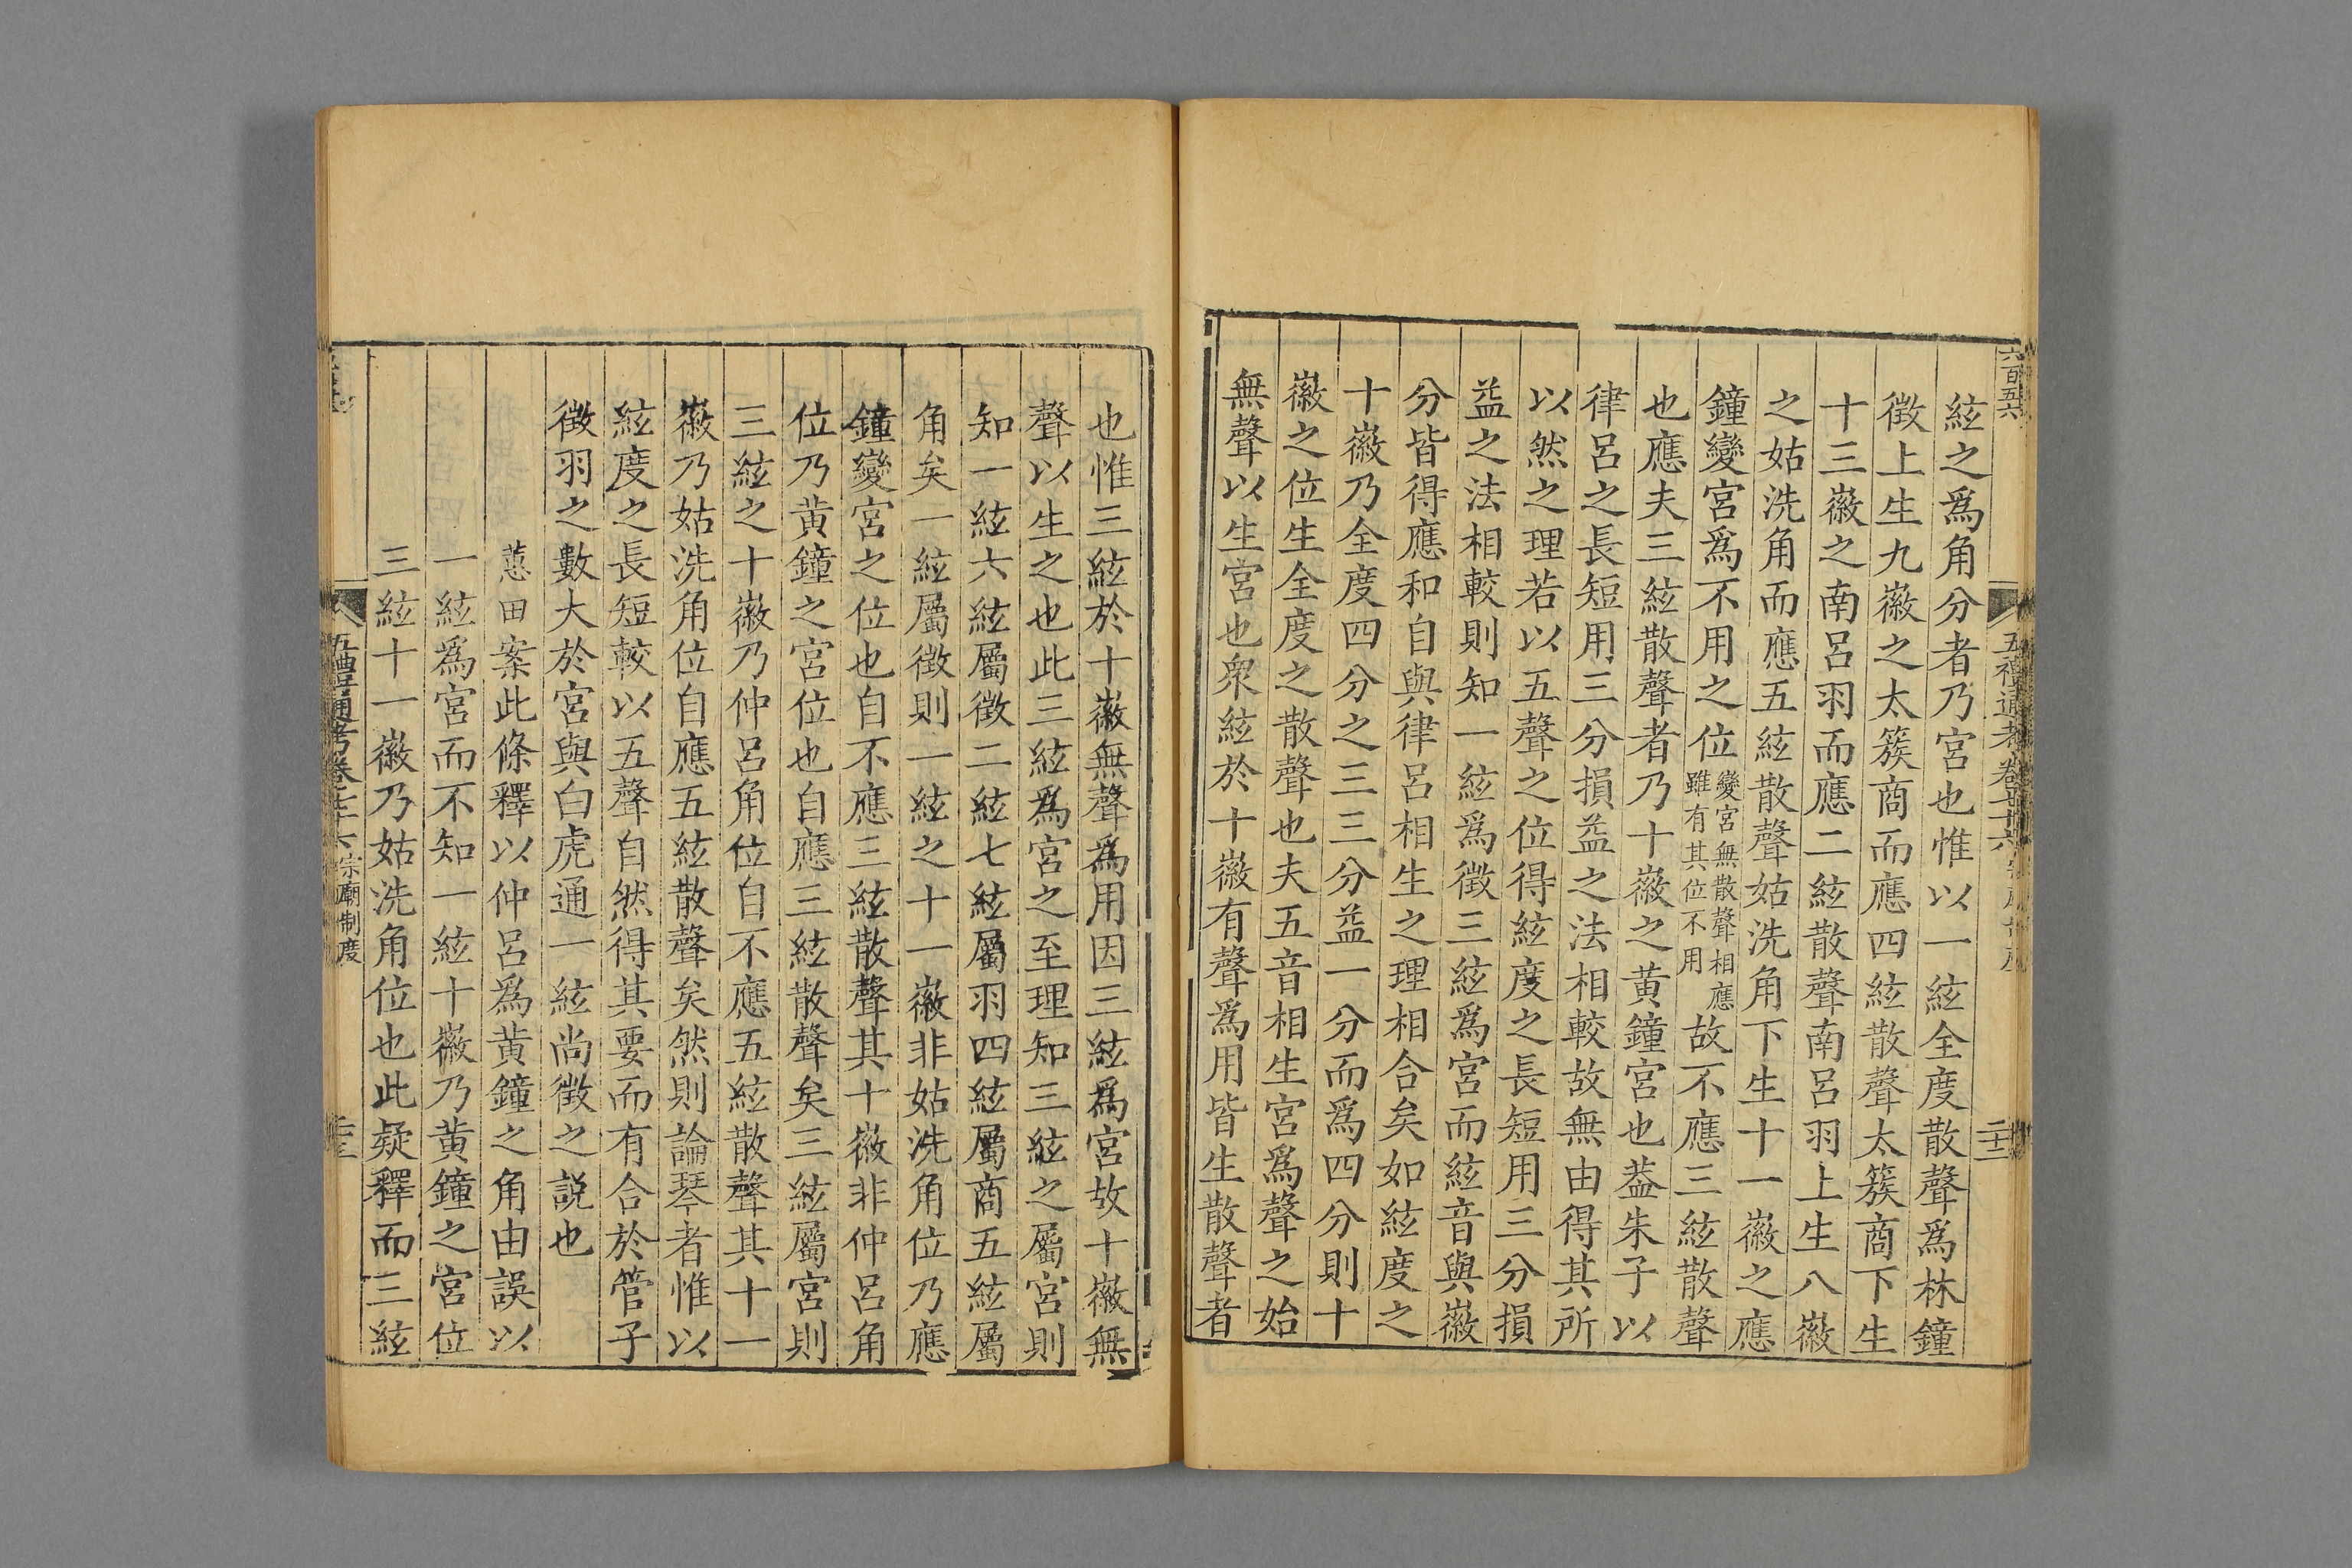 六百五六
絃之爲角分者乃宮也惟以一絃全度散聲爲林鐘
徵上生九徽之太簇商而應四絃散聲太簇商下生
十三徽之南呂羽而應二絃散聲南呂羽上生八徽
之姑洗角而應五絃散聲姑洗角下生十一徽之應
鐘變宮爲不用之位變宮無散聲相應雖有其位不用故不應三絃散聲
也應夫三絃散聲者乃十徽之黃鐘宮也葢朱子以
律呂之長短用三分損益之法相較故無由得其所
以然之理若以五聲之位得絃度之長短用三分損
益之法相較則知一絃爲徵三絃爲宮而絃音與徽
分皆得應和自與律呂相生之理相合矣如絃度之
十徽乃全度四分之三三分益一分而爲四分則十
徽之位生全度之散聲也夫五音相生宮爲聲之始
無聲以生宮也衆絃於十徽有聲爲用皆生散聲者
也惟三絃於十徽無聲爲用因三絃爲宮故十徽無
聲以生之也此三絃爲宮之至理知三絃之屬宮則
知一絃六絃屬徵二絃七絃屬羽四絃屬商五絃屬
角矣一絃屬徵則一絃之十一徽非姑洗角位乃應
鐘變宮之位也自不應三絃散聲其十徽非仲呂角
位乃黃鐘之宮位也自應三絃散聲矣三絃屬宮則
三絃之十徽乃仲呂角位自不應五絃散聲其十一
徽乃姑洗角位自應五絃散聲矣然則論琴者惟以
絃度之長短較以五聲自然得其要而有合於管子
徵羽之數大於宮與白虎通一絃尚徵之說也
蕙田案此條釋以仲呂爲黃鐘之角由誤以
一絃爲宮而不知一絃十徽乃黃鐘之宮位
三絃十一徽乃姑洗角位也此疑釋而三絃
五禮通考卷 宗廟制度